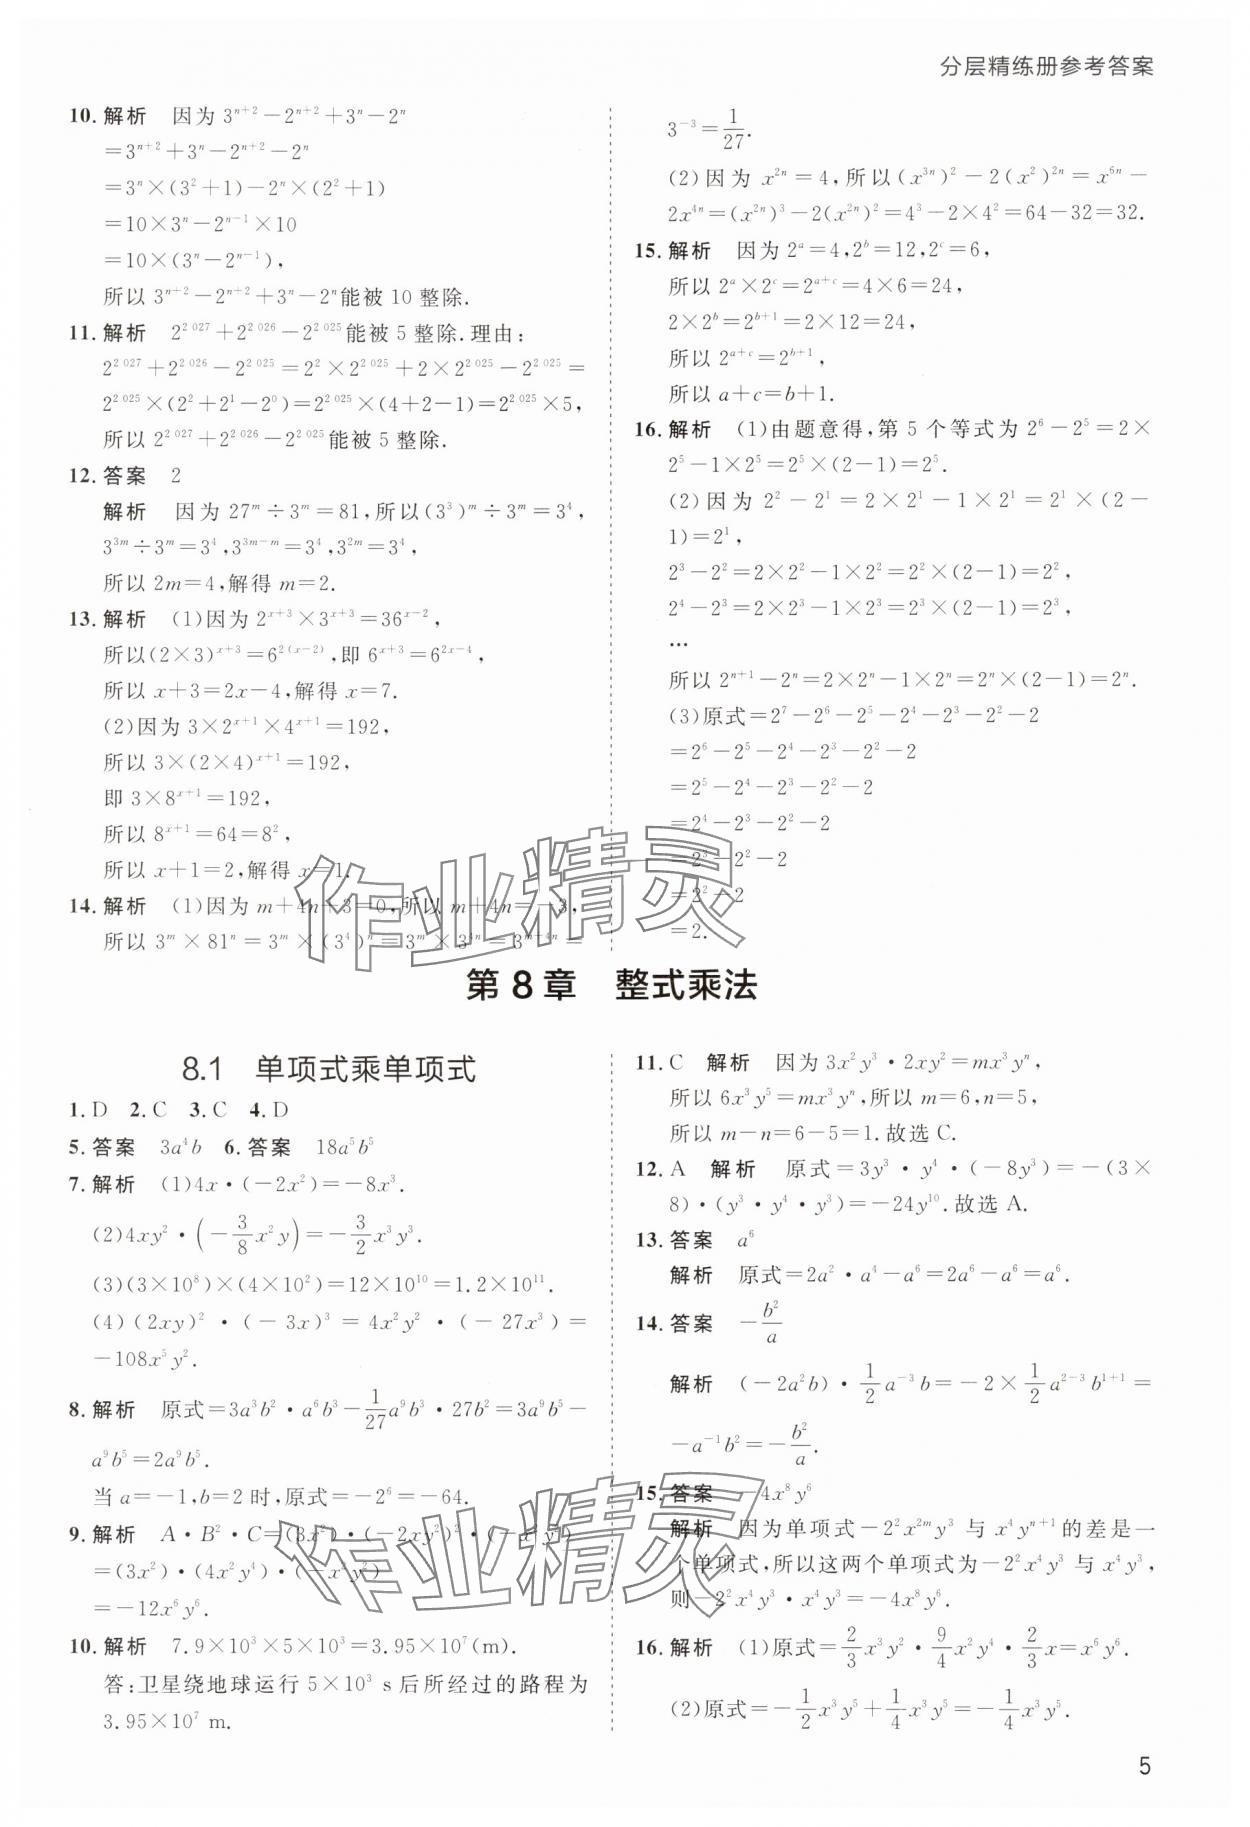 分层精练册参考答案
10. 解析 因为 3ⁿ⁺²－2ⁿ⁺²＋3ⁿ－2ⁿ
＝3ⁿ⁺²＋3ⁿ－2ⁿ⁺²－2ⁿ
＝3ⁿ×(3²＋1)－2ⁿ×(2²＋1)
＝10×3ⁿ－2ⁿ⁻¹×10
＝10×(3ⁿ－2ⁿ⁻¹),
所以 3ⁿ⁺²－2ⁿ⁺²＋3ⁿ－2ⁿ能被 10 整除.
11. 解析 2^{2 027}＋2^{2 026}－2^{2 025}能被 5 整除.理由:
2^{2 027}＋2^{2 026}－2^{2 025}＝2²×2^{2 025}＋2×2^{2 025}－2^{2 025}＝
2^{2 025}×(2²＋2¹－2⁰)＝2^{2 025}×(4＋2－1)＝2^{2 025}×5,
所以 2^{2 027}＋2^{2 026}－2^{2 025}能被 5 整除.
12. 答案 2
解析 因为 27^m÷3^m＝81,所以(3³)^m÷3^m＝3⁴,
3^{3m}÷3^m＝3⁴,3^{3m－m}＝3⁴,3^{2m}＝3⁴,
所以 2m＝4,解得 m＝2.
13. 解析 (1)因为 2^{x＋3}×3^{x＋3}＝36^{x－2},
所以(2×3)^{x＋3}＝6^{2(x－2)},即 6^{x＋3}＝6^{2x－4},
所以 x＋3＝2x－4,解得 x＝7.
(2)因为 3×2^{x＋1}×4^{x＋1}＝192,
所以 3×(2×4)^{x＋1}＝192,
即 3×8^{x＋1}＝192,
所以 8^{x＋1}＝64＝8²,
所以 x＋1＝2,解得 x＝1.
14. 解析 (1)因为 m＋4n＋3＝0,所以 m＋4n＝－3,
所以 3^m×81ⁿ＝3^m×(3⁴)ⁿ＝3^m×3^{4n}＝3^{m＋4n}＝
3⁻³＝1/27.
(2)因为 x^{2n}＝4,所以(x^{3n})²－2(x²)^{2n}＝x^{6n}－
2x^{4n}＝(x^{2n})³－2(x^{2n})²＝4³－2×4²＝64－32＝32.
15. 解析 因为 2^a＝4,2^b＝12,2^c＝6,
所以 2^a×2^c＝2^{a＋c}＝4×6＝24,
2×2^b＝2^{b＋1}＝2×12＝24,
所以 2^{a＋c}＝2^{b＋1},
所以 a＋c＝b＋1.
16. 解析 (1)由题意得,第 5 个等式为 2⁶－2⁵＝2×
2⁵－1×2⁵＝2⁵×(2－1)＝2⁵.
(2)因为 2²－2¹＝2×2¹－1×2¹＝2¹×(2－
1)＝2¹,
2³－2²＝2×2²－1×2²＝2²×(2－1)＝2²,
2⁴－2³＝2×2³－1×2³＝2³×(2－1)＝2³,
…
所以 2ⁿ⁺¹－2ⁿ＝2×2ⁿ－1×2ⁿ＝2ⁿ×(2－1)＝2ⁿ.
(3)原式＝2⁷－2⁶－2⁵－2⁴－2³－2²－2
＝2⁶－2⁵－2⁴－2³－2²－2
＝2⁵－2⁴－2³－2²－2
＝2⁴－2³－2²－2
＝2³－2²－2
＝2²－2
＝2.
第 8 章 整式乘法
8.1 单项式乘单项式
1. D 2. C 3. C 4. D
5. 答案 3a⁴b 6. 答案 18a⁵b⁵
7. 解析 (1)4x·(－2x²)＝－8x³.
(2)4xy²·(－3/8x²y)＝－3/2x³y³.
(3)(3×10⁸)×(4×10²)＝12×10¹⁰＝1.2×10¹¹.
(4)(2xy)²·(－3x)³＝4x²y²·(－27x³)＝
－108x⁵y².
8. 解析 原式＝3a³b²·a⁶b³－1/27a⁹b³·27b²＝3a⁹b⁵－
a⁹b⁵＝2a⁹b⁵.
当 a＝－1,b＝2 时,原式＝－2⁶＝－64.
9. 解析 A·B²·C＝(3x²)·(－2xy²)²·(－x²y²)
＝(3x²)·(4x²y⁴)·(－x²y²)
＝－12x⁶y⁶.
10. 解析 7.9×10³×5×10³＝3.95×10⁷(m).
答:卫星绕地球运行 5×10³ s 后所经过的路程为
3.95×10⁷ m.
11. C 解析 因为 3x²y³·2xy²＝mx³yⁿ,
所以 6x³y⁵＝mx³yⁿ,所以 m＝6,n＝5,
所以 m－n＝6－5＝1.故选 C.
12. A 解析 原式＝3y³·y⁴·(－8y³)＝－(3×
8)·(y³·y⁴·y³)＝－24y¹⁰.故选 A.
13. 答案 a⁶
解析 原式＝2a²·a⁴－a⁶＝2a⁶－a⁶＝a⁶.
14. 答案 －b²/a
解析 (－2a²b)·1/2a⁻³b＝－2×1/2a²⁻³b¹⁺¹＝
－a⁻¹b²＝－b²/a.
15. 答案 －4x⁸y⁶
解析 因为单项式－2²x^{2m}y³ 与 x⁴yⁿ⁺¹ 的差是一
个单项式,所以这两个单项式为－2²x⁴y³ 与 x⁴y³,
则－2²x⁴y³·x⁴y³＝－4x⁸y⁶.
16. 解析 (1)原式＝2/3x³y²·9/4x²y⁴·2/3x＝x⁶y⁶.
(2)原式＝－1/2x³y⁵＋1/4x³y⁵＝－1/4x³y⁵.
5
作业精灵
作业精灵